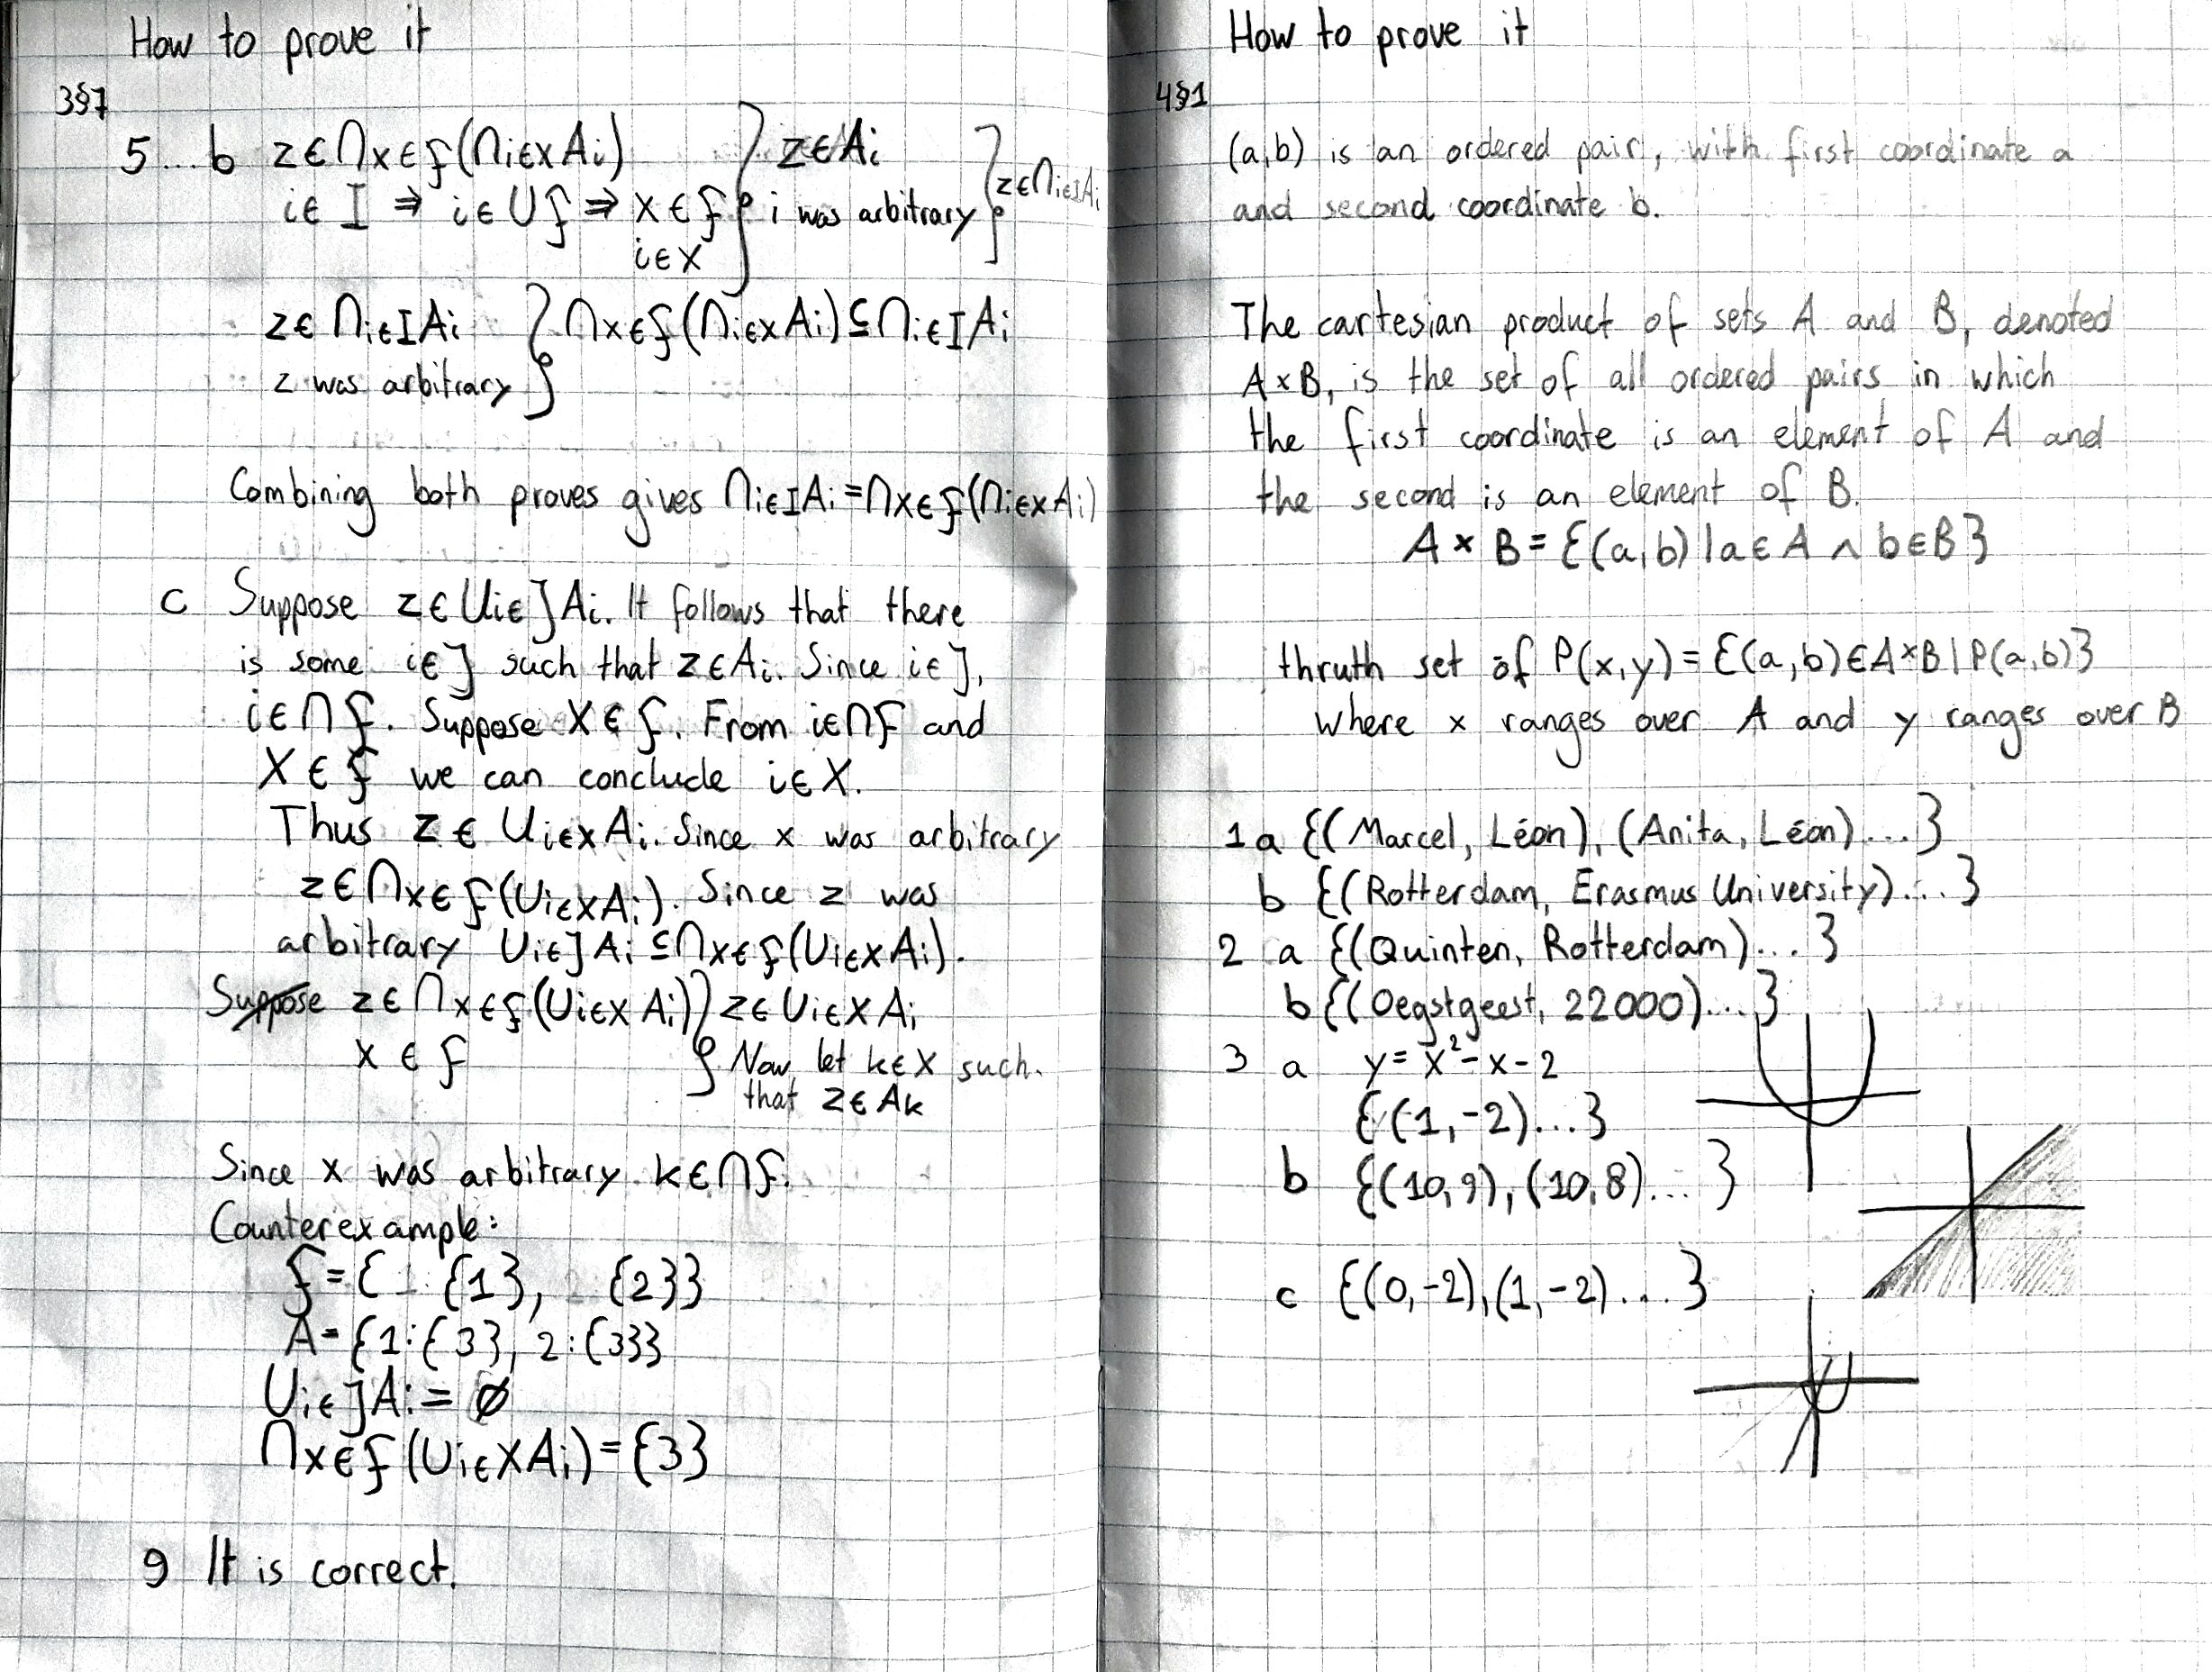 How to prove it
3§7
5...b z∈∩x∈ƒ(∩i∈xAi) } z∈Ai } z∈∩i∈IAi
i∈I ⇒ i∈∪ƒ ⇒ x∈ƒ } i was arbitrary
i∈x
z∈∩i∈IAi } ∩x∈ƒ(∩i∈xAi)⊆∩i∈IAi
z was arbitrary }
Combining both proves gives ∩i∈IAi=∩x∈ƒ(∩i∈xAi)
c Suppose z∈∪i∈JAi. It follows that there
is some i∈J such that z∈Ai. Since i∈J,
i∈∩ƒ. Suppose X∈ƒ. From i∈∩ƒ and
X∈ƒ we can conclude i∈X.
Thus z∈∪i∈xAi. Since x was arbitrary
z∈∩x∈ƒ(∪i∈xAi). Since z was
arbitrary ∪i∈JAi⊆∩x∈ƒ(∪i∈xAi).
Suppose z∈∩x∈ƒ(∪i∈xAi) } z∈∪i∈XAi
x∈ƒ } Now let k∈X such
that z∈Ak
Since x was arbitrary k∈∩ƒ.
Counterexample:
ƒ={ {1}, {2}}
A={1:{3}, 2:{3}}
∪i∈JAi=∅
∩x∈ƒ(∪i∈XAi)={3}
9 It is correct.
How to prove it
4§1
(a,b) is an ordered pair, with first coordinate a
and second coordinate b.
The cartesian product of sets A and B, denoted
A×B, is the set of all ordered pairs in which
the first coordinate is an element of A and
the second is an element of B.
A × B = {(a,b) | a∈A ∧ b∈B}
thruth set of P(x,y)={(a,b)∈A×B|P(a,b)}
where x ranges over A and y ranges over B
1a {(Marcel, Léon), (Anita, Léon)...}
b {(Rotterdam, Erasmus University)...}
2 a {(Quinten, Rotterdam)...}
b {(Oegstgeest, 22000)...}
3 a y=x²-x-2
{(1,-2)...}
b {(10,9), (10,8)...}
c {(0,-2),(1,-2)...}